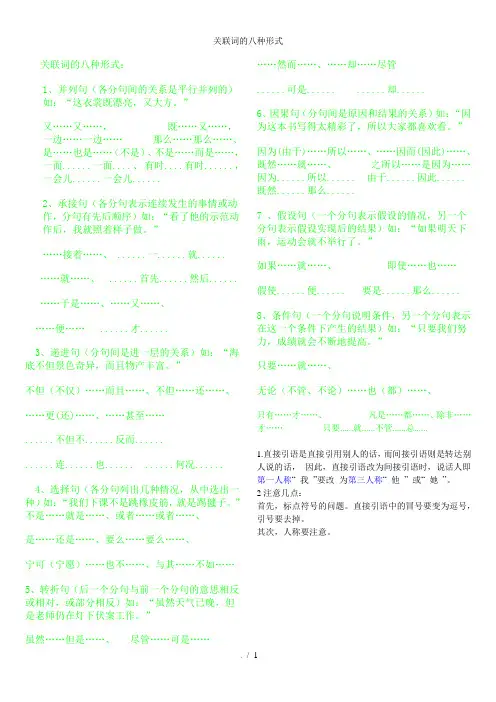 关联词的八种形式
关联词的八种形式：
1、并列句（各分句间的关系是平行并列的）
如：“这衣裳既漂亮，又大方。”
又……又……、 既……又……、
一边……一边…… 那么……那么……、
是……也是……（不是）、不是……而是……、
一面......一面....、有时....有时......，
一会儿......一会儿.....
2、承接句（各分句表示连续发生的事情或动
作，分句有先后顺序）如：“看了他的示范动
作后，我就照着样子做。”
……接着……、 ......一......就......
……就……、 ......首先......然后......
……于是……、……又……、
……便…… ......才......
3、递进句（分句间是进一层的关系）如：“海
底不但景色奇异，而且物产丰富。”
不但（不仅）……而且……、不但……还……、
……更(还)……、……甚至……
......不但不......反而......
......连......也...... ......何况......
4、选择句（各分句列出几种情况，从中选出一
种）如：“我们下课不是跳橡皮筋，就是踢毽子。”
不是……就是……、或者……或者……、
是……还是……、要么……要么……、
宁可（宁愿）……也不……、与其……不如……
5、转折句（后一个分句与前一个分句的意思相反
或相对，或部分相反）如：“虽然天气已晚，但
是老师仍在灯下伏案工作。”
虽然……但是……、 尽管……可是……
……然而……、……却……尽管
......可是...... ......却......
6、因果句（分句间是原因和结果的关系）如：“因
为这本书写得太精彩了，所以大家都喜欢看。”
因为(由于)……所以……、……因而(因此)……、
既然……就……、 之所以……是因为……
因为......所以...... 由于......因此......
既然......那么......
7 、假设句（一个分句表示假设的情况，另一个
分句表示假设实现后的结果）如：“如果明天下
雨，运动会就不举行了。”
如果……就……、 即使……也……
假使......便...... 要是......那么......
8、条件句（一个分句说明条件，另一个分句表示
在这一个条件下产生的结果）如：“只要我们努
力，成绩就会不断地提高。”
只要……就……、
无论（不管、不论）……也（都）……、
只有……才……、 凡是……都……、除非……
才…… 只要......就......不管......总......
1.直接引语是直接引用别人的话，而间接引语则是转达别
人说的话， 因此，直接引语改为间接引语时，说话人即
第一人称“ 我 ”要改 为第三人称“ 他 ” 或“ 她 ”。
2 注意几点：
首先，标点符号的问题。直接引语中的冒号要变为逗号，
引号要去掉。
其次，人称要注意。
. / 1